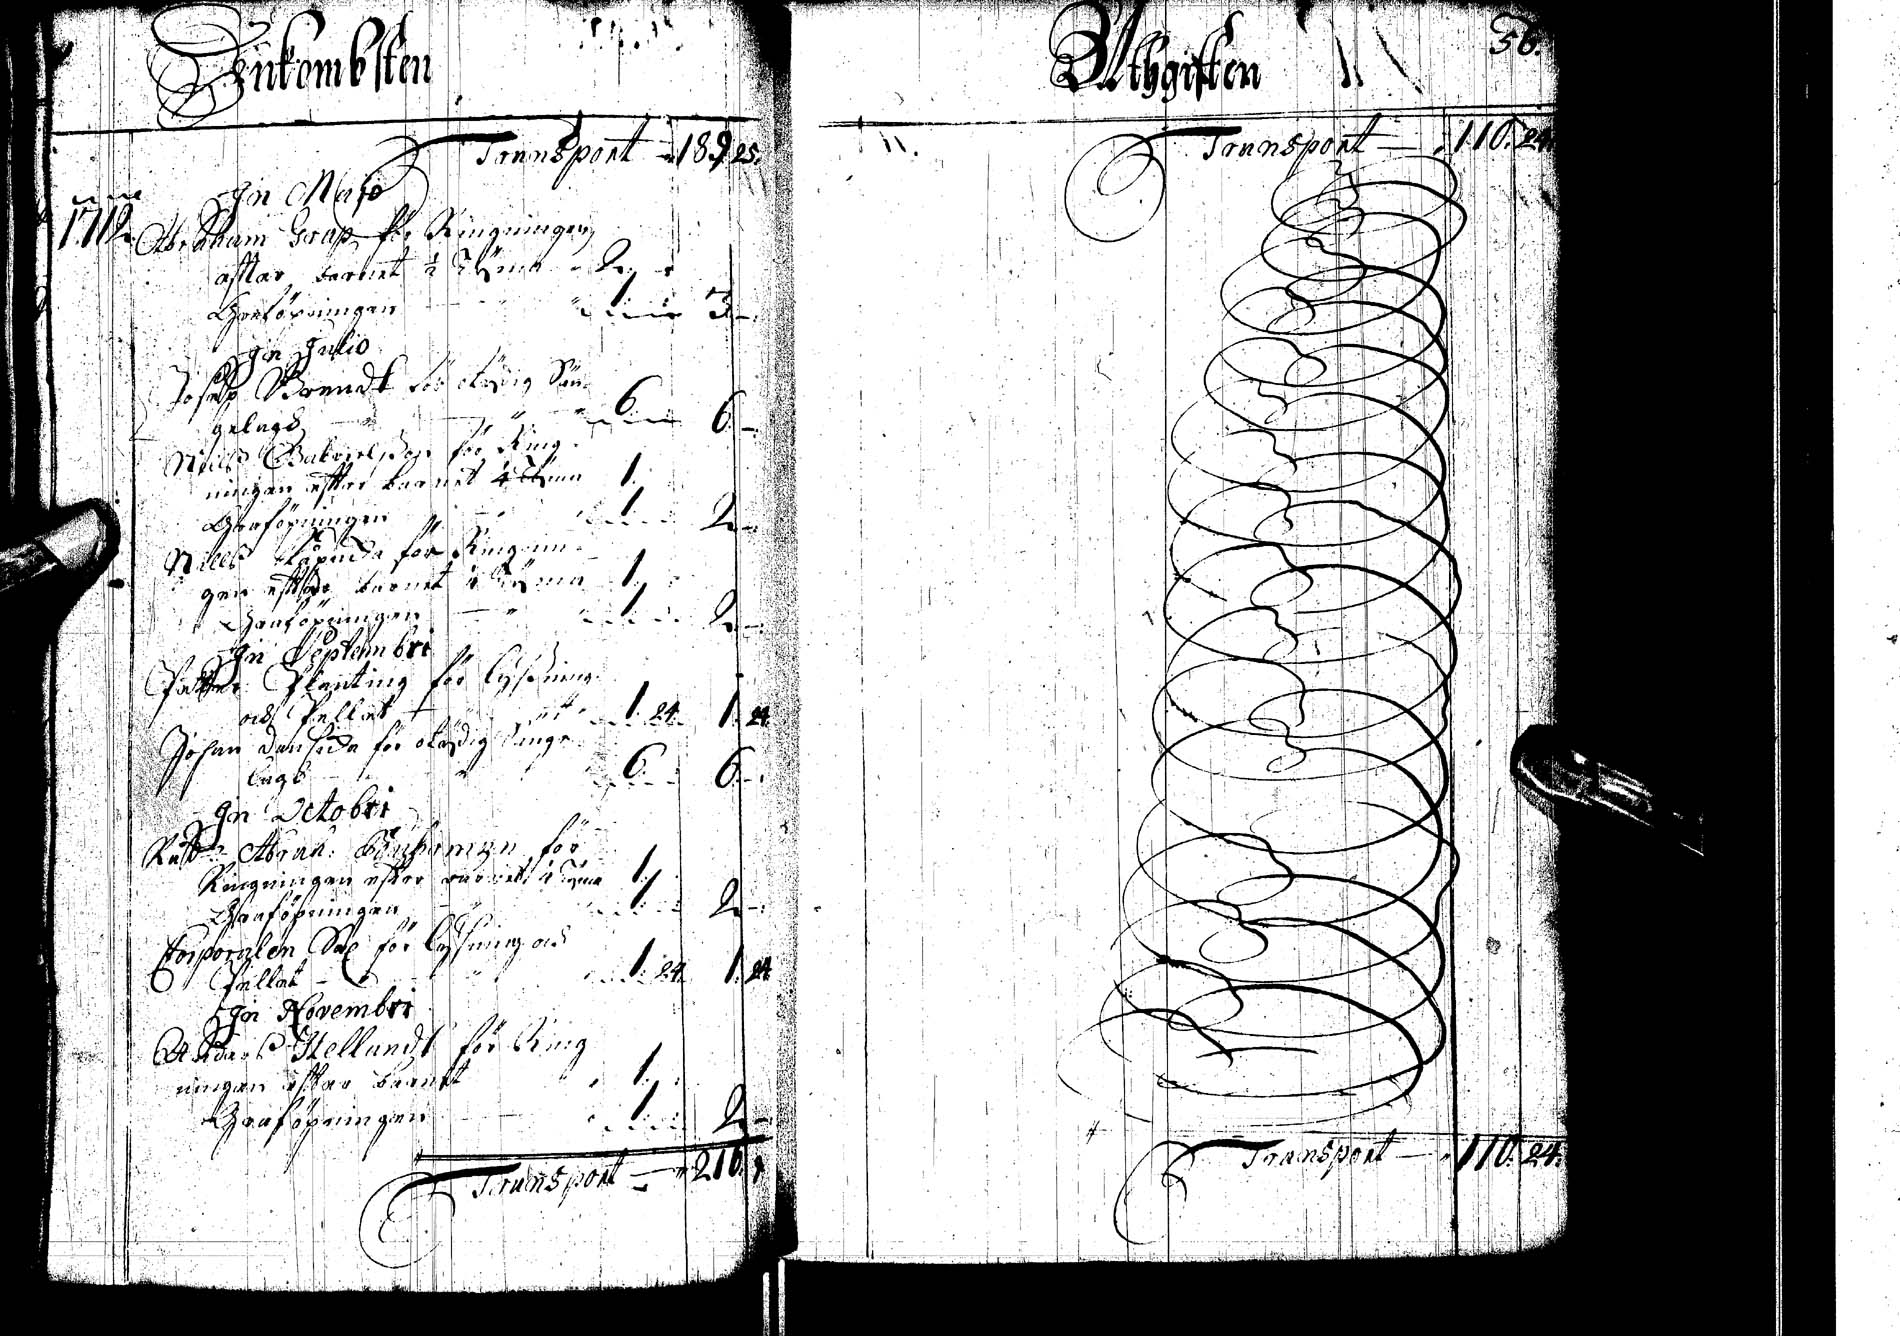 Inkombsten
Transport — 189 25.
In Majo
1712. Abraham Grap för Ringningen
effter barnet ½ Tijma 2.
Graföpningen 1 3 —
In Julio
Joseph Brandt för otijdig Sän-
gelagh 6 6 —
Nills Gabrielsson för Ring-
ningen effter barnet ¼ Tijma 1.
Graföpningen 1 2 —
Nills för Ringnin-
gen effter barnet ¼ Tijma 1.
Graföpningen 1 2 —
In Septembri
Petter Planting för lyssning
od Pellat 1 24 1 24
Johan för otijdig Sänge-
lagh 6 6 —
In Octobri
Abrah: för
Ringningen effter barnet ¼ Tijma 1.
Graföpningen 1 2 —
Corporalen för lyssning od
Pellat 1 24 1 24
In Novembri
Anders Hellundt för Ring
ningen effter barnet 1.
Graföpningen 1 2 —
Transport — 216.
Uthgifften
56.
Transport — 110. 24.
Transport — 110. 24.